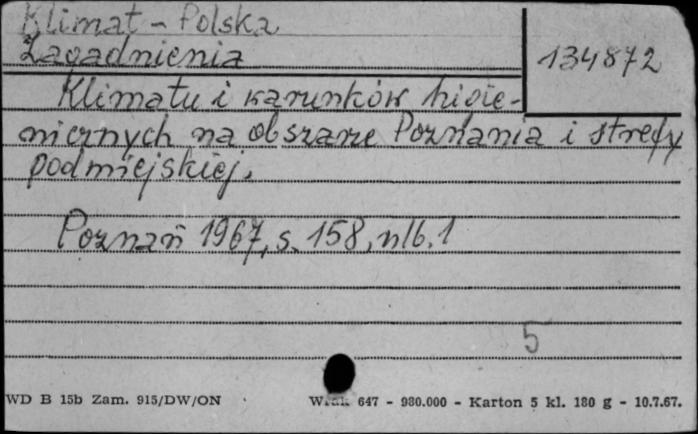 Klimat - Polska
Zagadnienia
134872
Klimatu i warunków higie-
nicznych na obszarze Poznania i strefy
podmiejskiej.
Poznań 1967, s. 158, nlb. 1
5
WD B 15b Zam. 915/DW/ON
647 - 980.000 - Karton 5 kl. 180 g - 10.7.67.